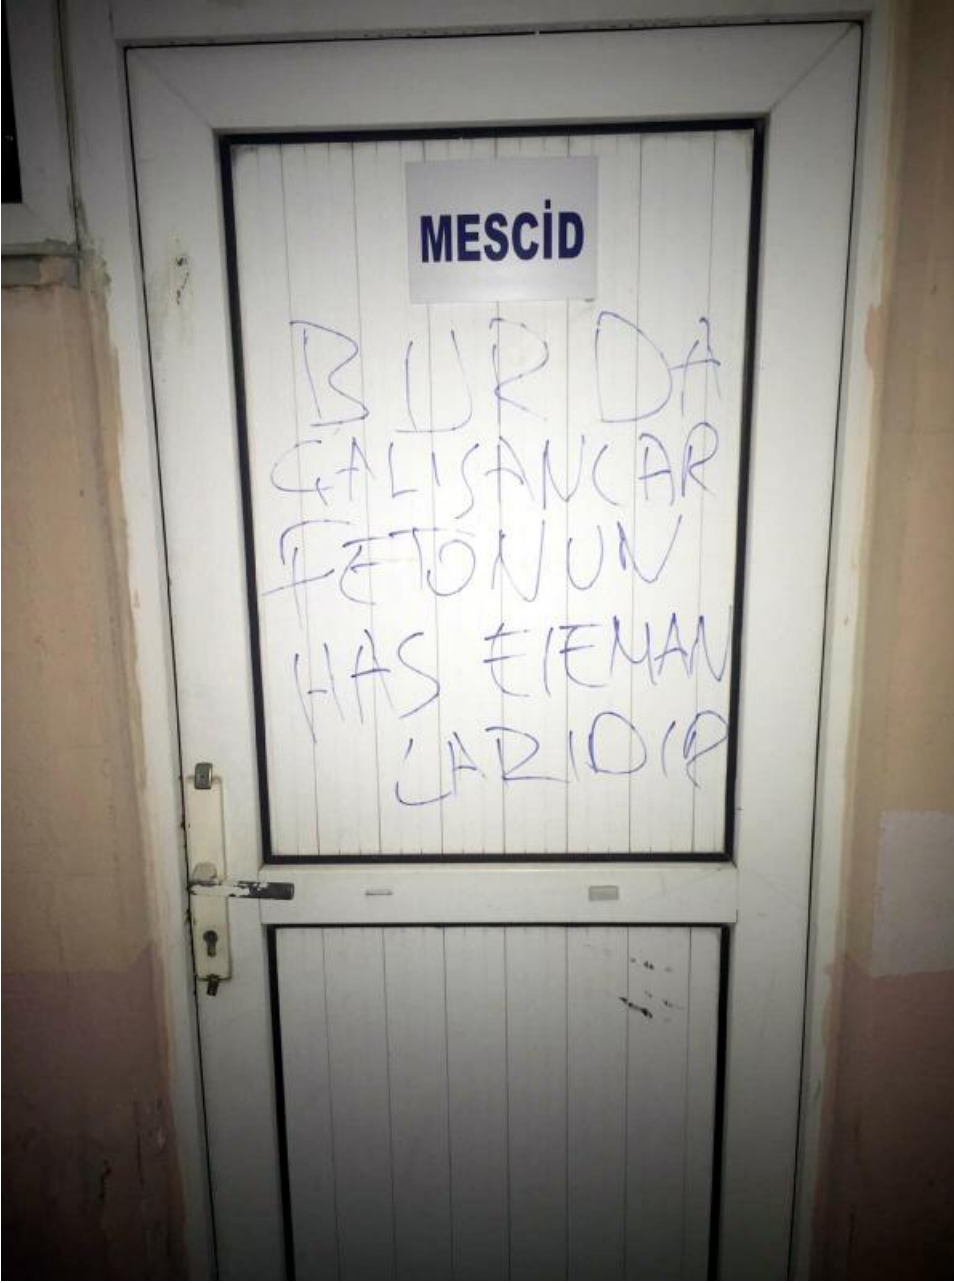 MESCİD
BURDA
ÇALIŞANLAR
FETÖNUN
HAS ELEMAN
LARIDIR